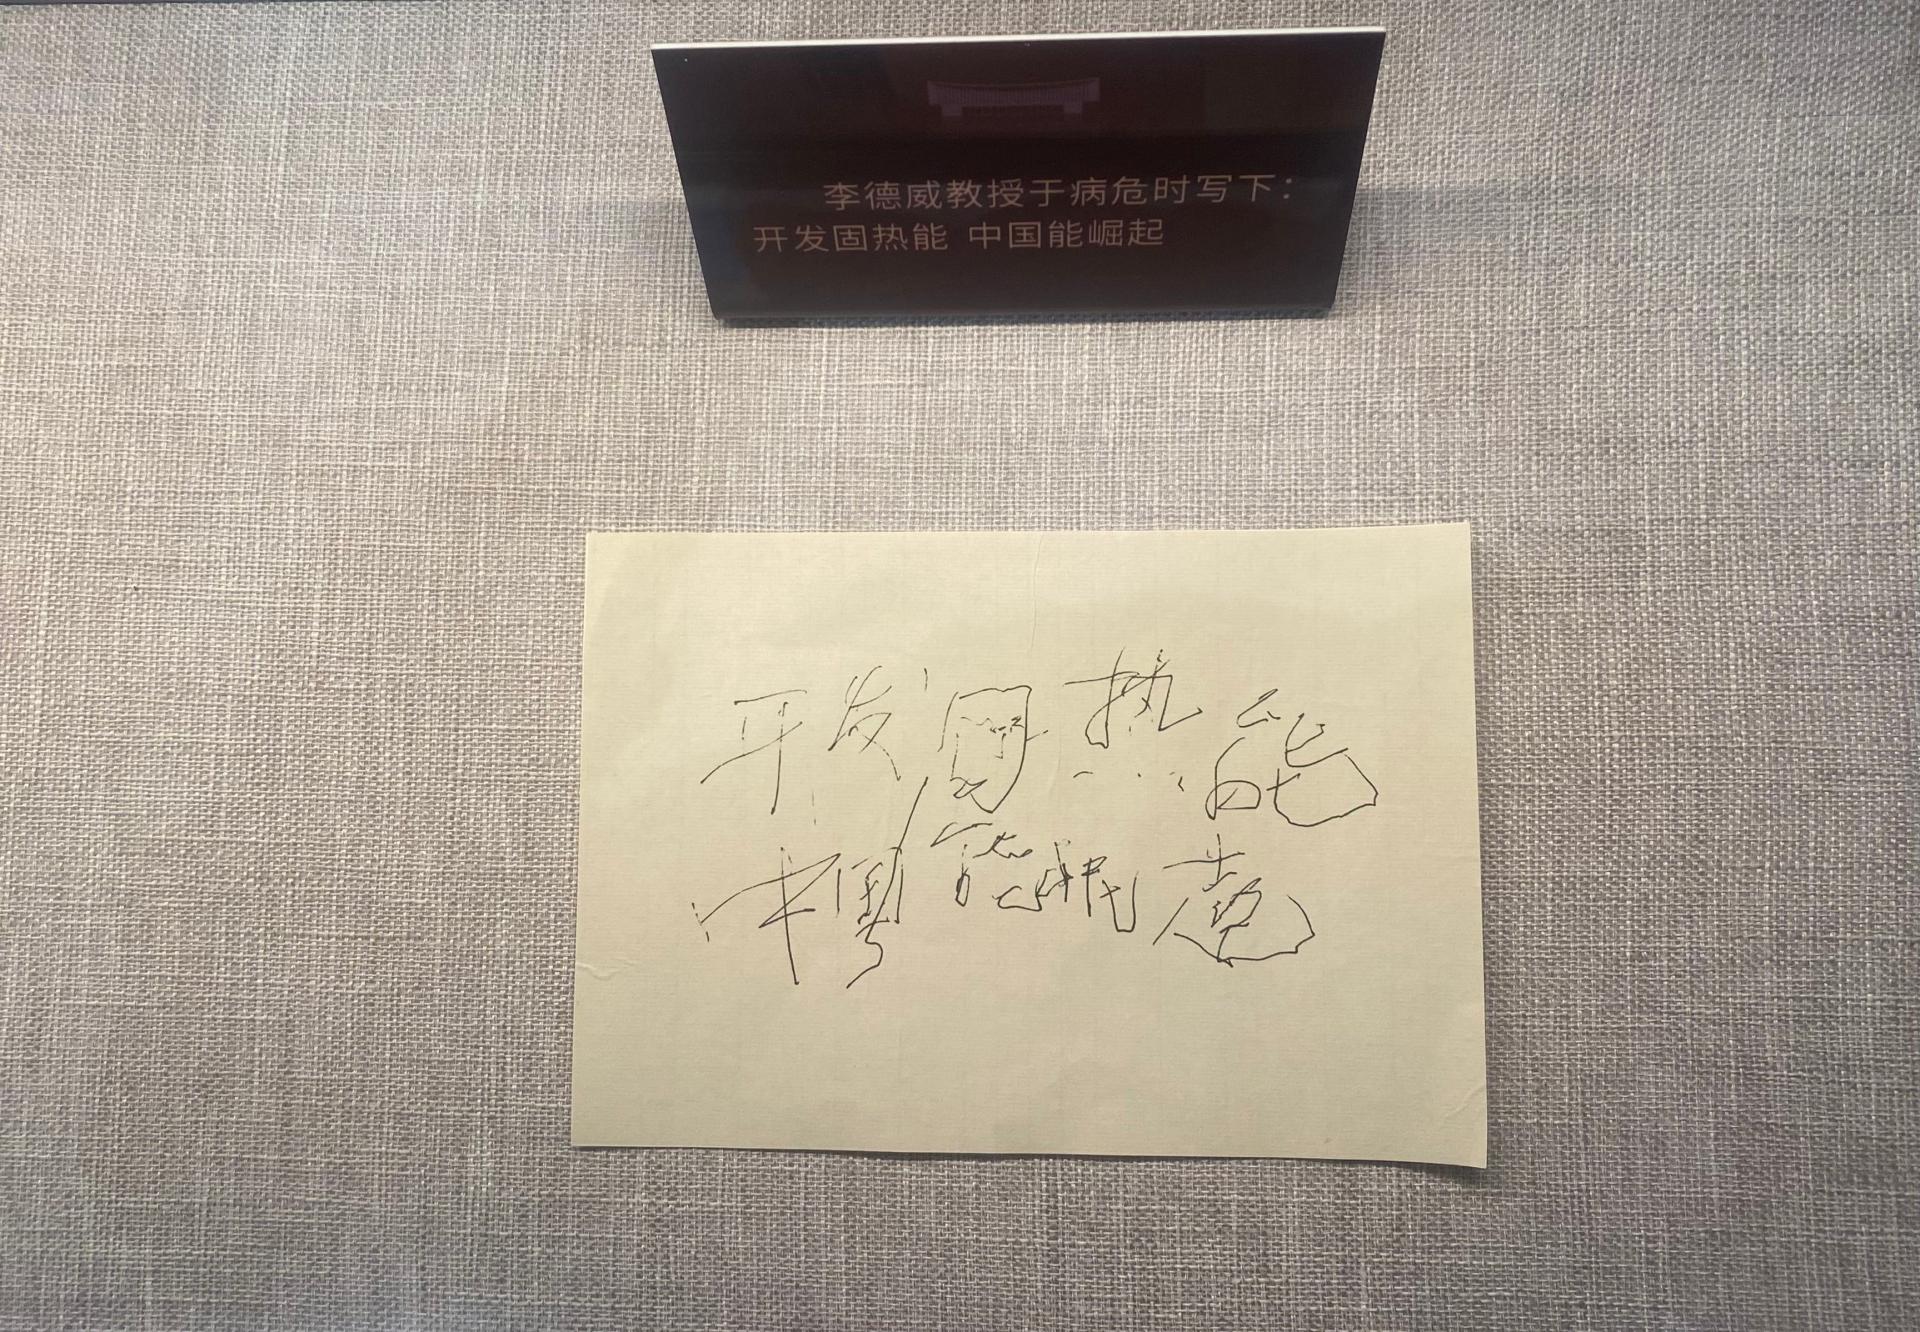 李德威教授于病危时写下：
开发固热能 中国能崛起
开发固热能
中国能崛起